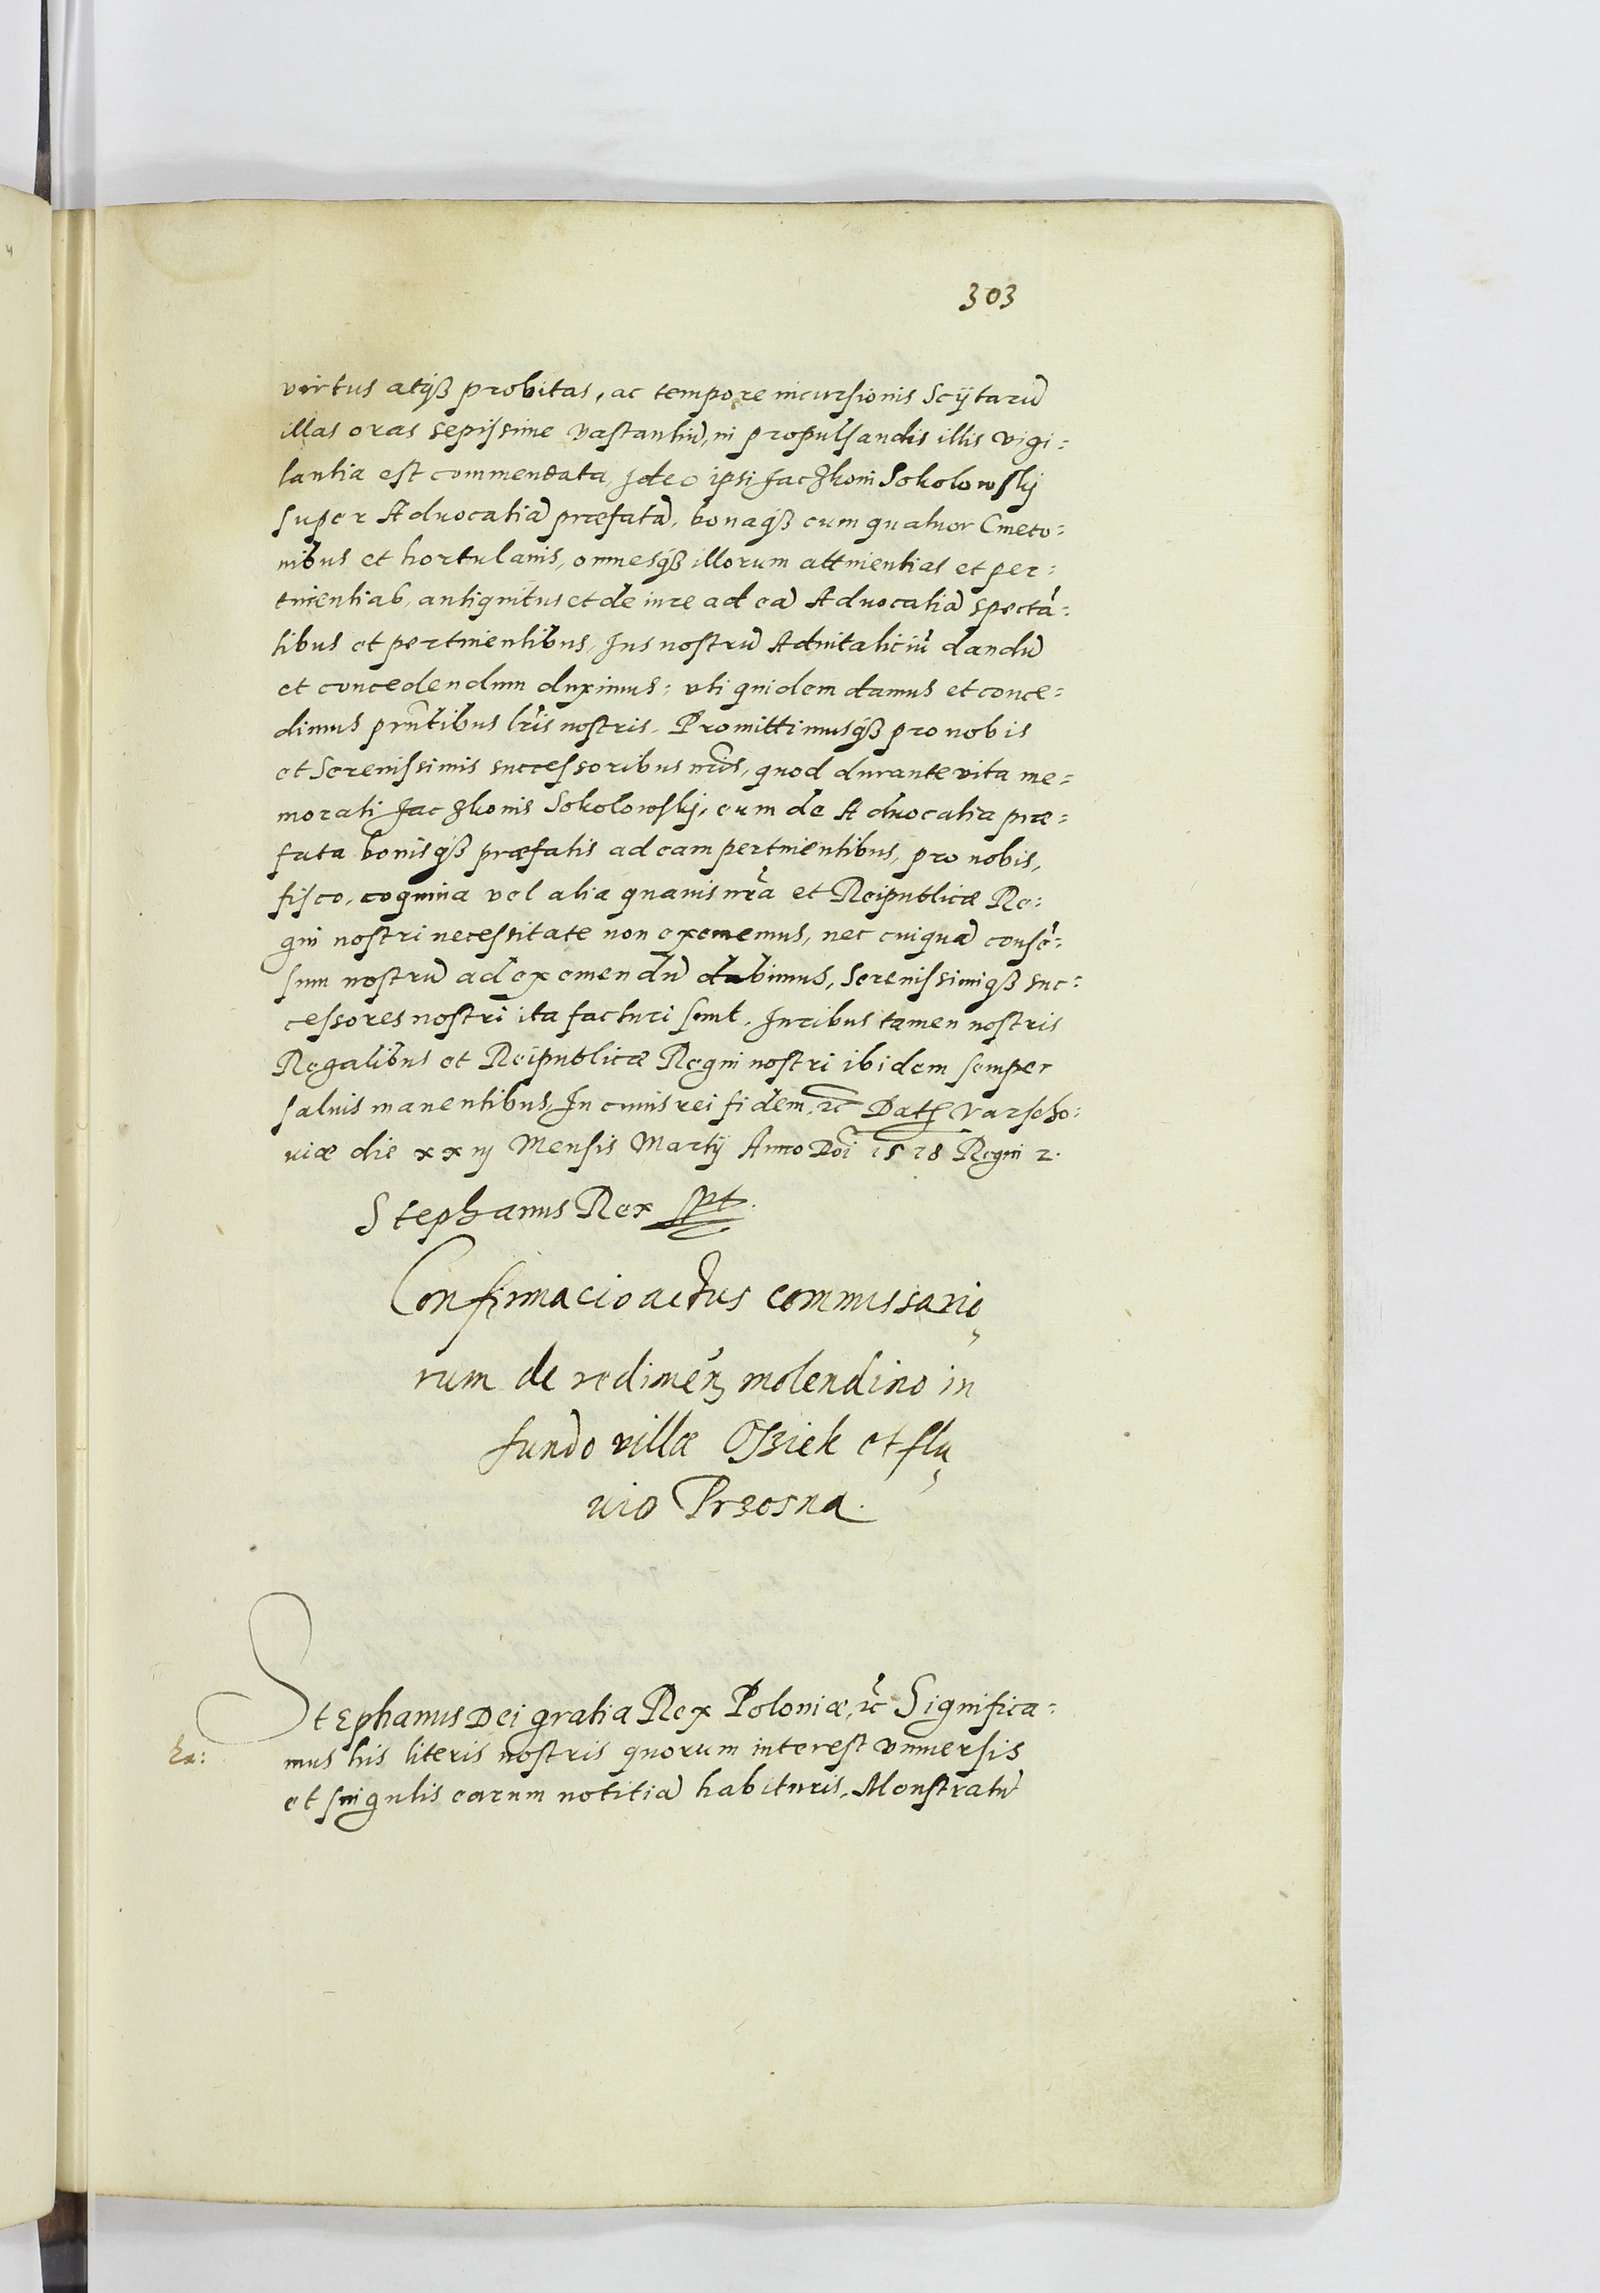 303
virtus atqß probitas, ac tempore incursionis Scÿtarū
illas oras sepissime vastantiū, in propulsandis illis vigi=
lantia est commendata, Ideo ipsi Jaczkoni Sokolowskj
super Aduocatiā præfatā, bonaqß cum quatuor Cmeto=
nibus et hortulanis, omnesqß illorum attinentias et per=
tinentiab, antiquitus et de iure ad eā Aduocatiā spectā=
tibus et pertinentibus, Jus nostrū Aduitaliciū dandū
et concedendum duximus: vti quidem damus et conce=
dimus pñtibus lris nostris. Promittimusqß pro nobis
et Serenissimis successoribus nris, quod durante vita me=
morati Jaczkonis Sokolowskj, eum de Aduocatia præ=
fata bonisqß præfatis ad eam pertinentibus, pro nobis,
fisco, coquina vel alia quauis nrā et Reipublicæ Re=
gni nostri necessitate non exememus, nec cuiquā consē=
sum nostrū ad exemendū dabimus, Serenissimiqß suc=
cessores nostri ita facturi sunt. Juribus tamen nostris
Regalibus et Reipublicæ Regni nostri ibidem semper
saluis manentibus, In cuius rei fidem, rc Dat Varscho=
uiæ die xx iij Mensis Martij Anno Dni 1578 Regni 2.
Stephanus Rex spt.
Confirmacio actus commissario
rum de redimen molendino in
fundo villæ Osziek et flu
uio Przosna.
Stephanus Dei gratia Rex Poloniæ, rc Significa=
Za:
mus his literis nostris quorum interest vniuersis
et singulis earum notitiā habituris. Monstratū